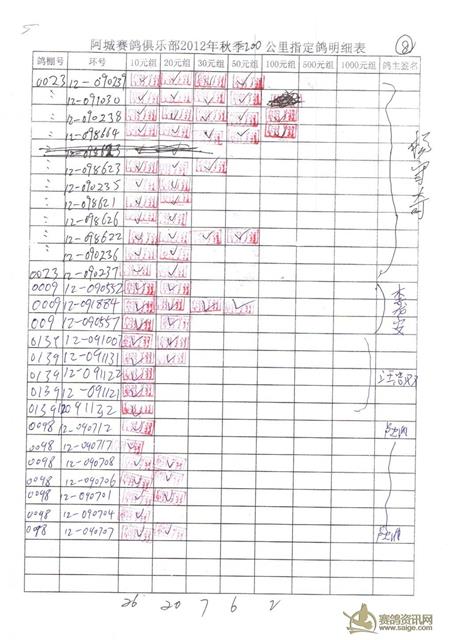 阿城赛鸽俱乐部2012年秋季200公里指定鸽明细表 8
鸽棚号 环号 10元组 20元组 30元组 50元组 100元组 500元组 1000元组 鸽主签名
0023 12-090239 ✓ ✓ ✓ ✓
〃 12-091030 ✓ ✓ ✓ ✓
〃 12-090238 ✓ ✓ ✓ ✓ ✓
〃 12-098664 ✓ ✓ ✓ ✓ ✓
〃 12-098623 ✓ ✓ ✓
〃 12-090235 ✓ ✓
〃 12-098621 ✓ ✓
〃 12-098626 ✓ ✓
〃 12-098622 ✓ ✓ ✓ ✓
〃 12-090236 ✓ ✓
0023 12-090237 ✓ ✓
0009 12-090552 ✓ ✓
0009 12-091884 ✓ ✓ ✓ ✓
009 12-090557 ✓ ✓
0139 12-091007 ✓ ✓
0139 12-091131 ✓ ✓
0139 12-091122 ✓
0139 12-091121 ✓
0139 12091132 ✓
0098 12-040712 ✓
0098 12-040717 ✓
0098 12-040708 ✓ ✓
0098 12-040706 ✓ ✓
0098 12-040701 ✓ ✓
0098 12-040704 ✓
0098 12-040707 ✓ ✓
26 20 7 6 2
赛鸽资讯网
www.saige.com